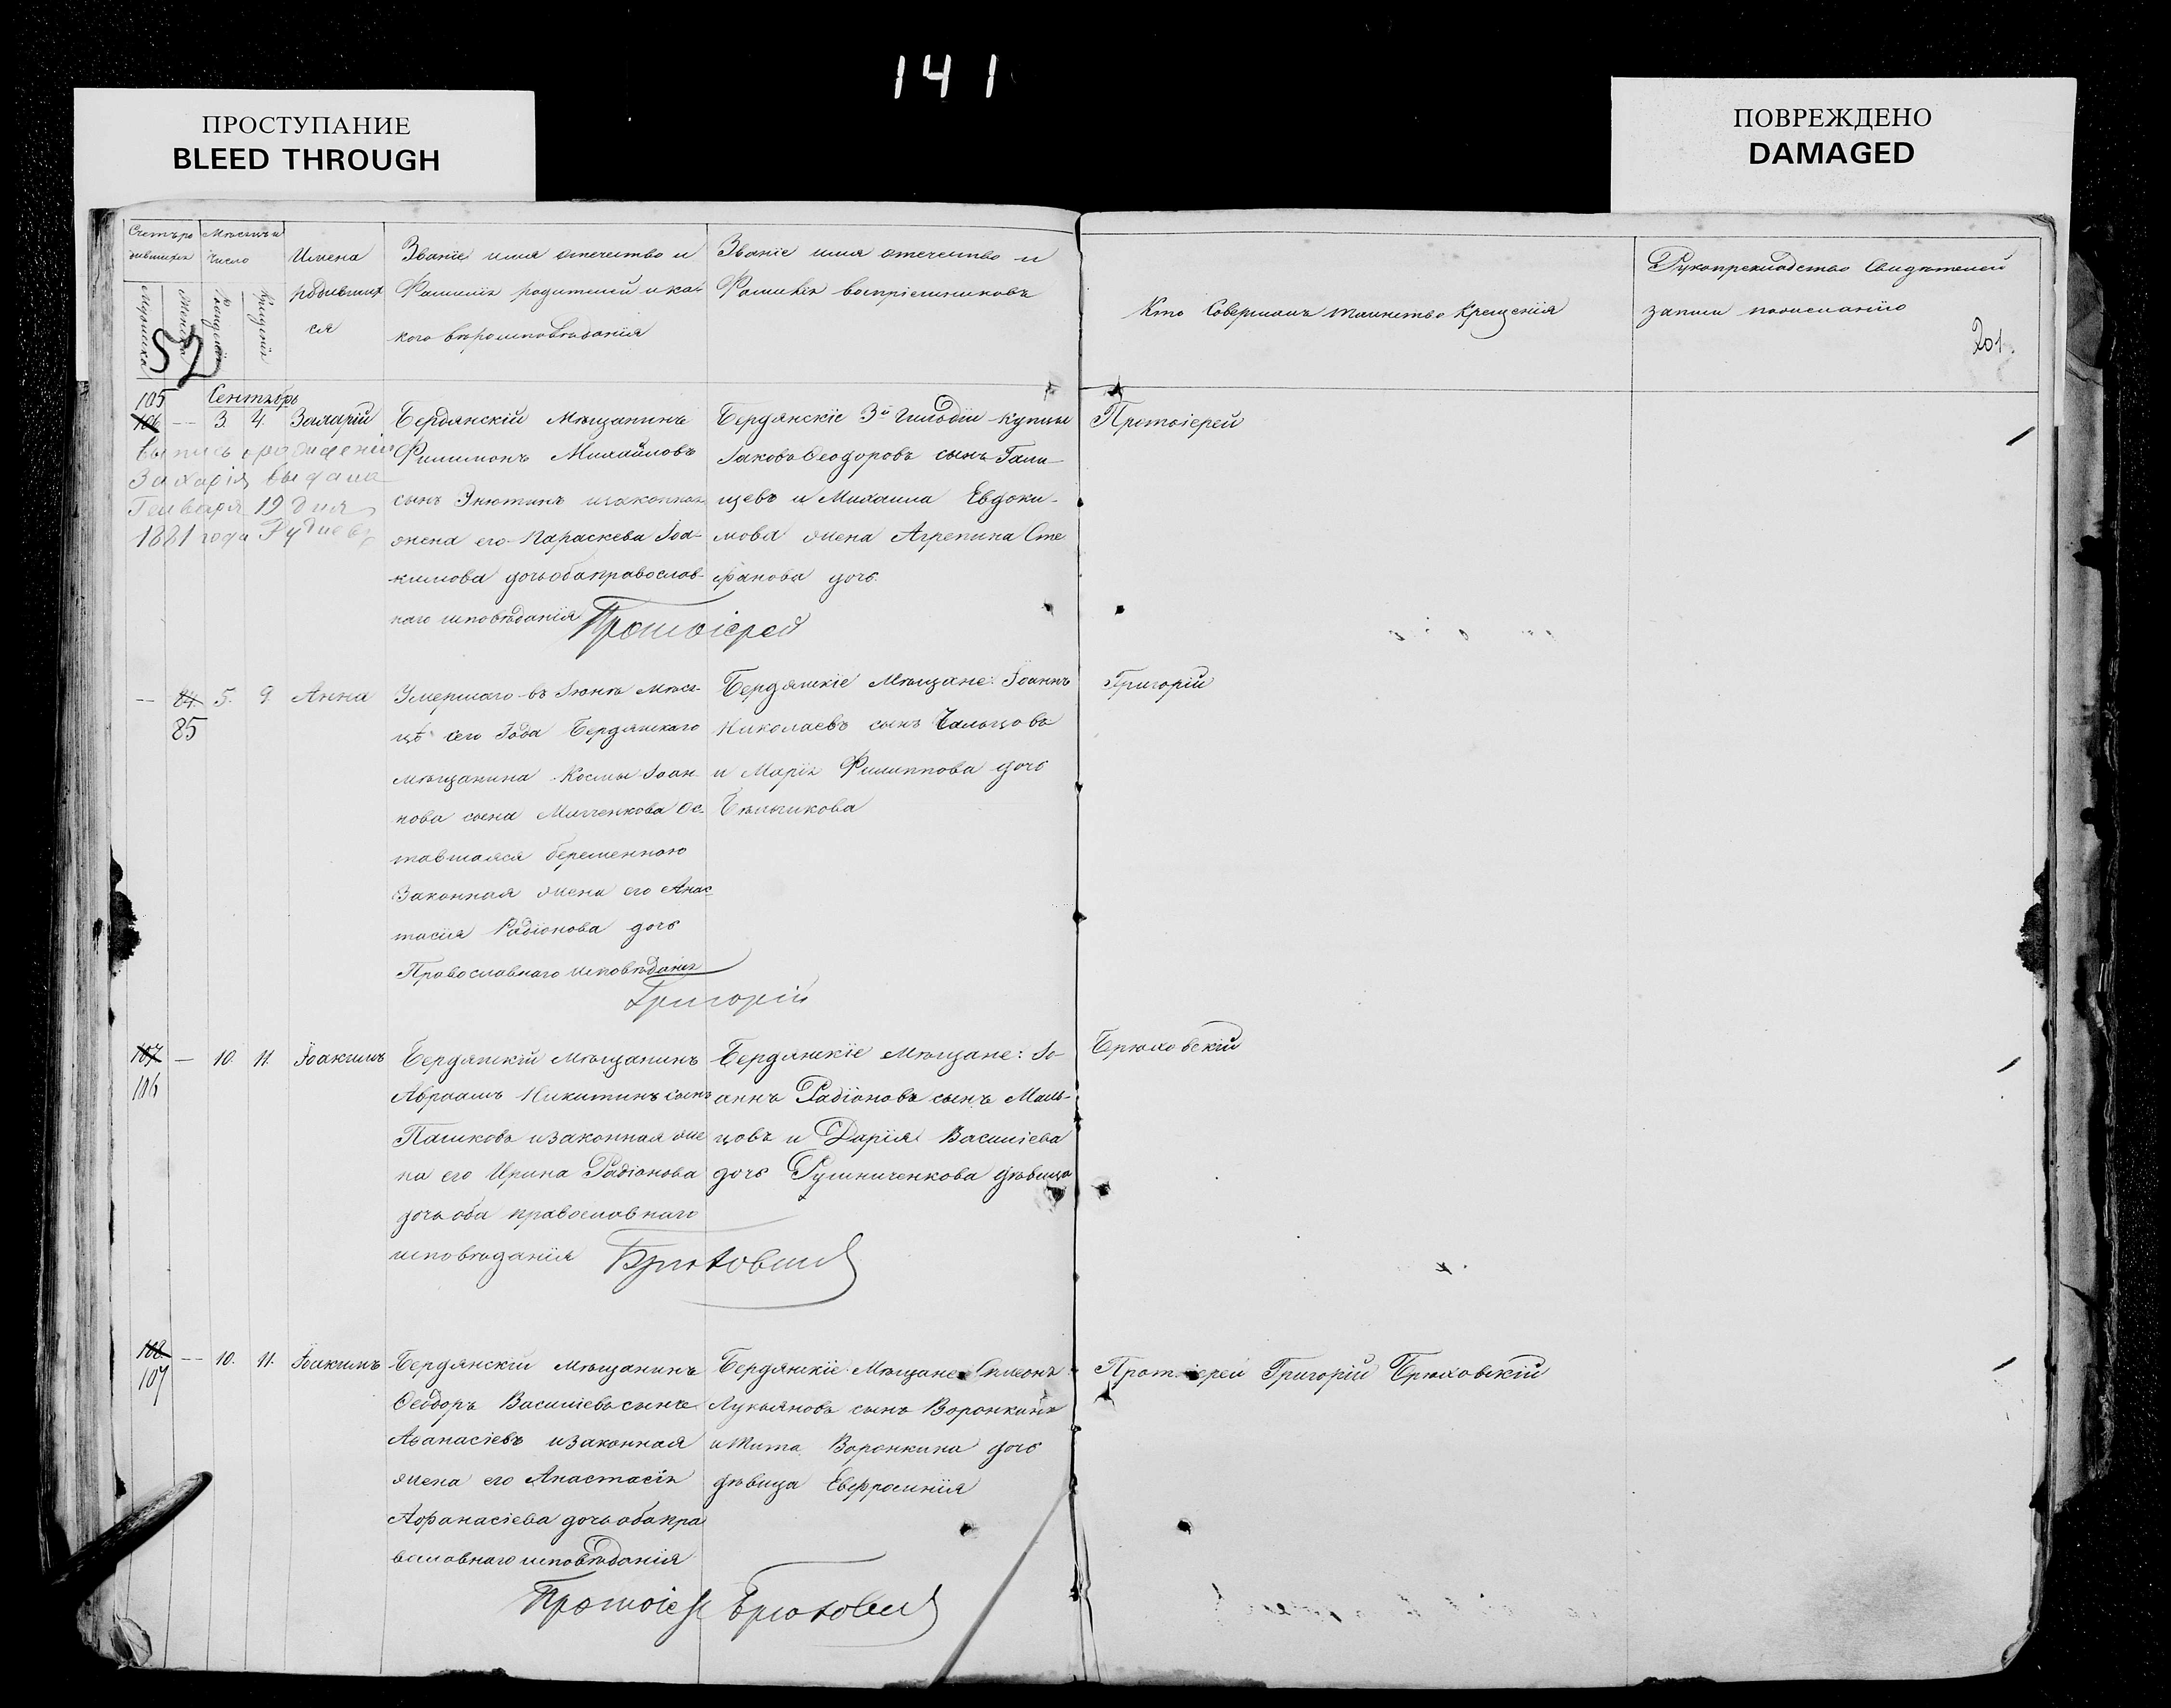 141
ПРОСТУПАНИЕ
BLEED THROUGH
ПОВРЕЖДЕНО
DAMAGED
Счетъ ро
дившихся
Мѣсяцъ и
число
Имена
родивших
ся
Званіе имя отечество и
Фамилія родителей и ка-
кого вѣроисповѣданія
Званіе имя отечество и
Фамилія воспріемниковъ
Кто Совершалъ таинство Крещенія
Рукоприкладство Свидѣтелей
записи пожеланію
201.
Мужска
Женска
Рожденія
Крещенія
52
Сентябрь
105
106 — 3. 4. Захарій
Выпись о рожденіи
Захарія выдана
Генваря 19 дня
1881 года
Бердянскій Мѣщанинъ
Филимонъ Михайловъ
сынъ изаконная
жена его Параскева Іоа-
кимова дочь оба православ-
наго исповѣданія
Протоіерей
Бердянскіе 3й Гильдіи купцы
Іаковъ Феодоровъ сынъ Гали-
цевъ и Михаила Евдоки-
мова жена Агрепина Сте
фанова дочь
Протоіерей
— 84. 5. 9. Анна
85
Умершаго въ Іюнѣ Мѣся-
цѣ сего Года Бердянскаго
мѣщанина Космы Іоан-
нова сына Ос-
тавшаяся беременною
Законная жена его Анас-
тасія Радіонова дочь
Православнаго исповѣданія
Григорій
Бердянскіе Мѣщане: Іоаннъ
Николаевъ сынъ
и Марія Филиппова дочь
Григорій
107 — 10. 11. Іоакимъ
106
Бердянскій Мѣщанинъ
Авраамъ Никитинъ сынъ
Пашковъ изаконная же
на его Ирина Радіонова
дочь оба православнаго
исповѣданія
Брюховскій
Бердянскіе Мѣщане: Іо-
аннъ Радіоновъ сынъ Маль-
цовъ и Дарія Василіева
дочь Гушниченкова дѣвица
Брюховскій
108 — 10. 11. Іоакимъ
107
Бердянскій Мѣщанинъ
Феодоръ Василіевъ сынъ
Аѳанасіевъ изаконная
жена его Анастасія
Афанасіева дочь оба пра
вославнаго исповѣданія
Бердянскіе Мѣщане Симеонъ
Лукьяновъ сынъ Воронкинъ
Воронкина дочь
дѣвица Евфросинія
Протоіерей Григорій Брюховскій
Протоіе Брюховскій